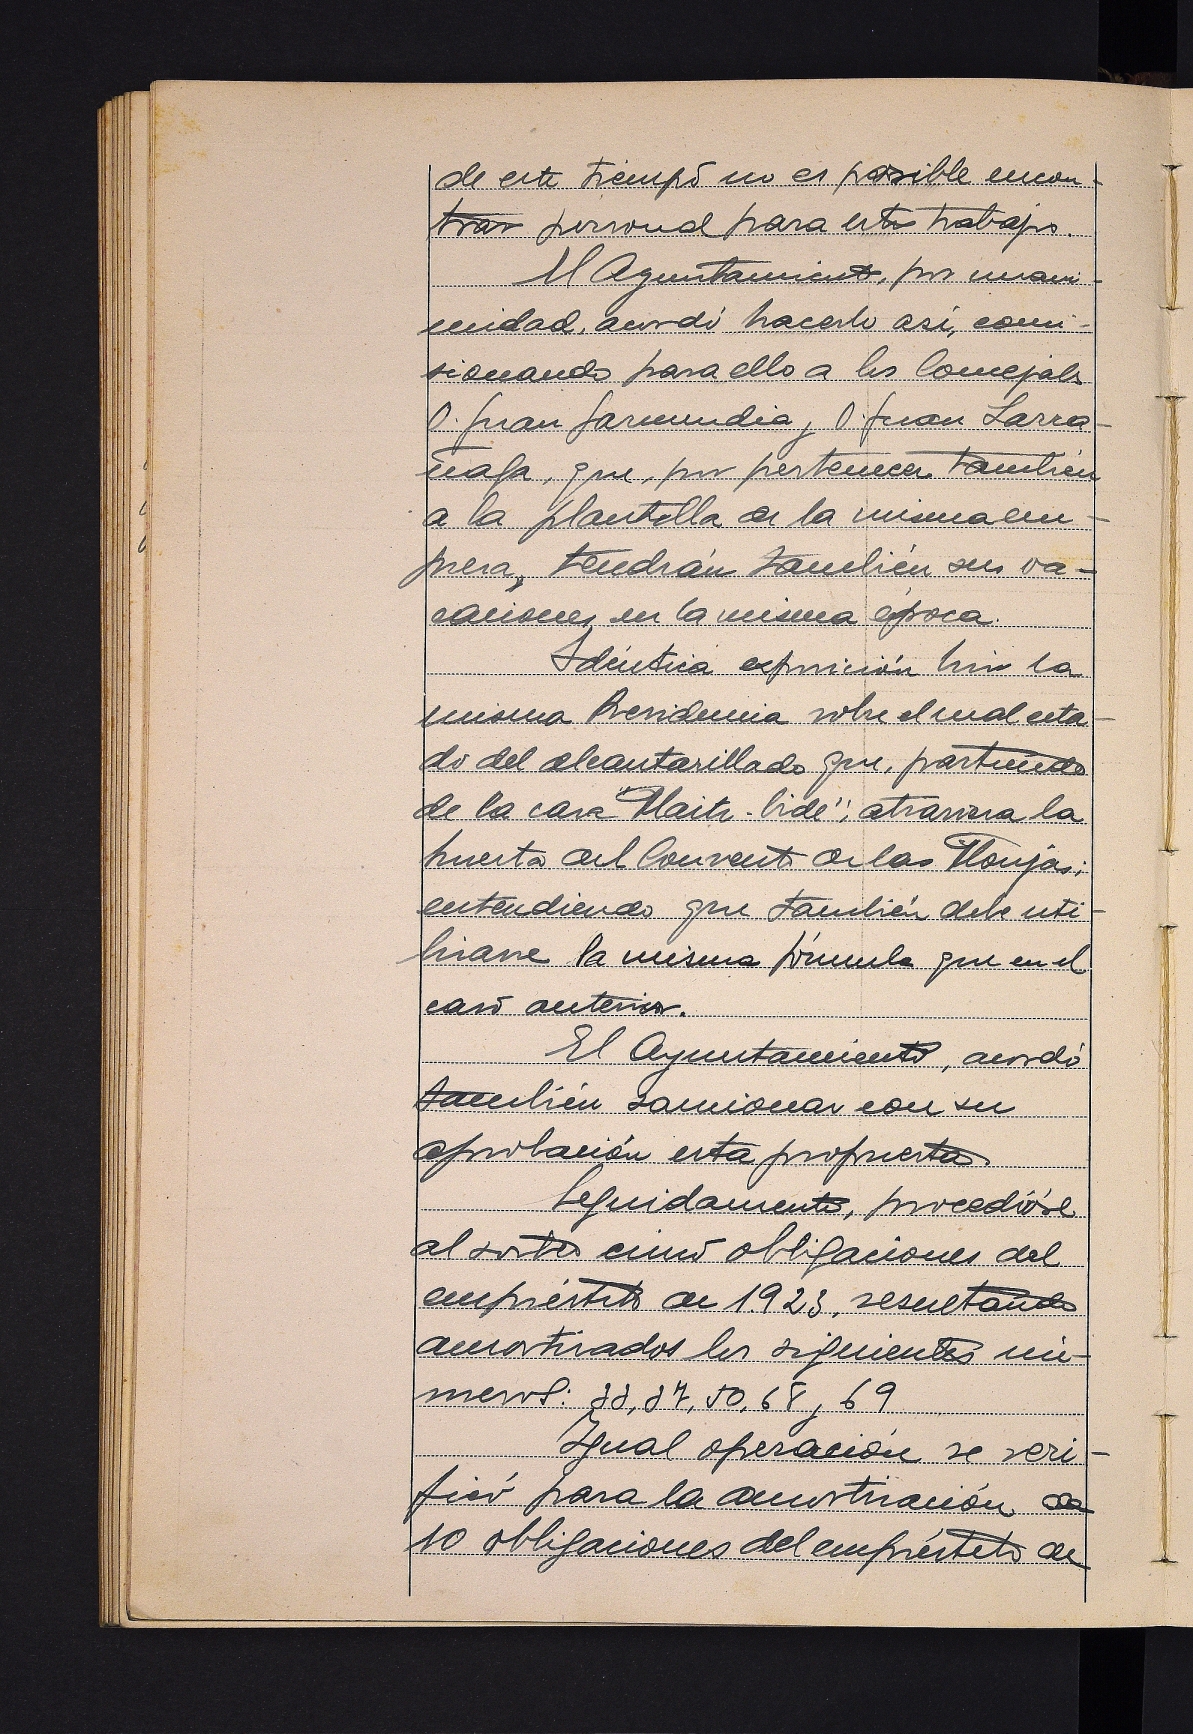 de este tiempo no es posible encon-
trar personal para estos trabajos.
El Ayuntamiento, por unani-
midad, acordó hacerlo así, comi-
sionando para ello a los Concejales
D. Juan Garmendia y D. Juan Larra-
ñaga, que, por pertenecer también
a la plantilla de la misma em-
presa, tendrán también sus va-
caciones en la misma época.
Idéntica exposición hizo la
misma Presidencia sobre el mal esta-
do del alcantarillado que, partiendo
de la casa "Maite-bide", atraviesa la
huerta del Convento de las Monjas;
entendiendo que también debe uti-
lizarse la misma fórmula que en el
caso anterior.
El Ayuntamiento, acordó
también sancionar con su
aprobación esta propuesta.
Seguidamente, procedióse
al sorteo cinco obligaciones del
empréstito de 1923, resultando
amortizados los siguientes nú-
meros: 33, 37, 50, 68 y 69
Igual operación se veri-
ficó para la amortización de
10 obligaciones del empréstito de